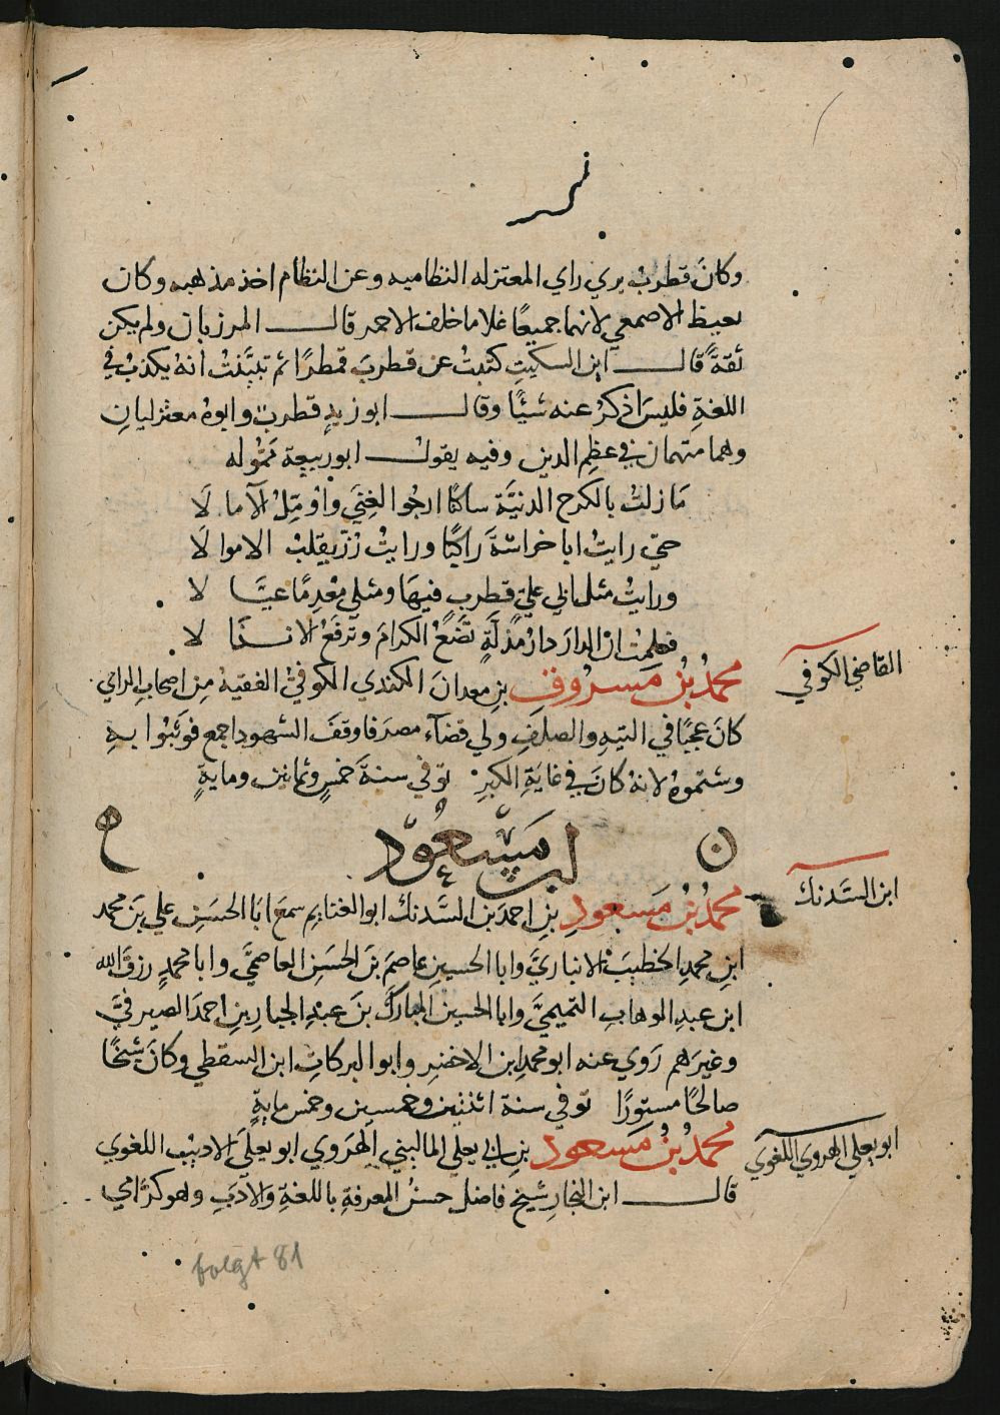 وكانَ قطربْ يري راي المعتزله النظاميه وعن النظام اخذ مذهبه وكان
يعيظ الاصمعي لانهما جميعًا غلاما خلف الاحمر قال المرزبان ولم يكن
ثقةً قال ابن السكيتِ كتبتُ عن قطربَ قمطرًا ثم تبيَّنتُ انهُ يكذبُ في
اللغةِ فليسَ اذكرُ عنه شيئًا وقال ابو زيدٍ قطربٌ وابوهُ معتزليانِ
وهما متهمان في عظمِ الدين وفيه يقول ابو ربيعة
مَا زلتُ بالكرح الدنيَّة ساكنًا ارجُوا الغِنَي واؤمِّلُ الآما لَا
حتيّ رايتُ ابا خراشةَ راكبًا ورايتُ يقلبُ الاموا لَا
ورايتُ مثل ابي عليّ قطربٍ فيهَا ومثلي مُعْدِمًا عيَّا لا
فعلمت ان الدارَ دارُ مذلَّةٍ تضَعُ الكرامَ وترفَعُ الانذا لا
القاضي الكوفي
محمدُ بْنُ مَسرُوقِ بنِ معدانَ الكندي الكوفيُّ الفقيهُ مِن اصحابِ الراي
كانَ عجبًا في التيهِ والصلفِ ولي قضآء مصرَ فاوقفَ الشهودَ اجمع فوثبُوا بهِ
وشتموهُ لانهُ كانَ في غايَةِ الكبرِ توفي سنةَ خمسٍ وثمانين ومايةٍ
ن ابن مسعود ح
ابن السَّدنك
محمدُ بْنُ مَسعودِ بنِ احمدَ بن السَّدنك ابو الغنايم سمعَ ابَا الحسَنِ علي بَنَ محمد
ابنِ محمدِ الخطيبَ الانباريَّ وابا الحسينِ عاصمَ بنَ الحسَنِ العاصميَّ وابا محمدٍ رزقَ الله
ابن عبدِ الوهابِ التميميَّ وابا الحسينِ المباركَ بنَ عبْدِ الجبارِ بنِ احمدَ الصيرفيَّ
وغيرَهم رَوي عنه ابو محمدِ ابن الاخضرِ وابو البركاتِ ابن السقطي وكانَ شيخًا
صالحًا مستورًا توفي سنة اثنتين وخمسين وخمس مايةٍ
ابو يعلي الهروي اللغوي
محمدُ بْنُ مَسعود بنِ ابي يعلي الماليني الهَروي ابو يعلَي الاديبُ اللغوي
قال ابن النجارِ شيخ فاضل حسنُ المعرفةِ باللغةِ والادَبِ وهو كرَّامي
folgt 81